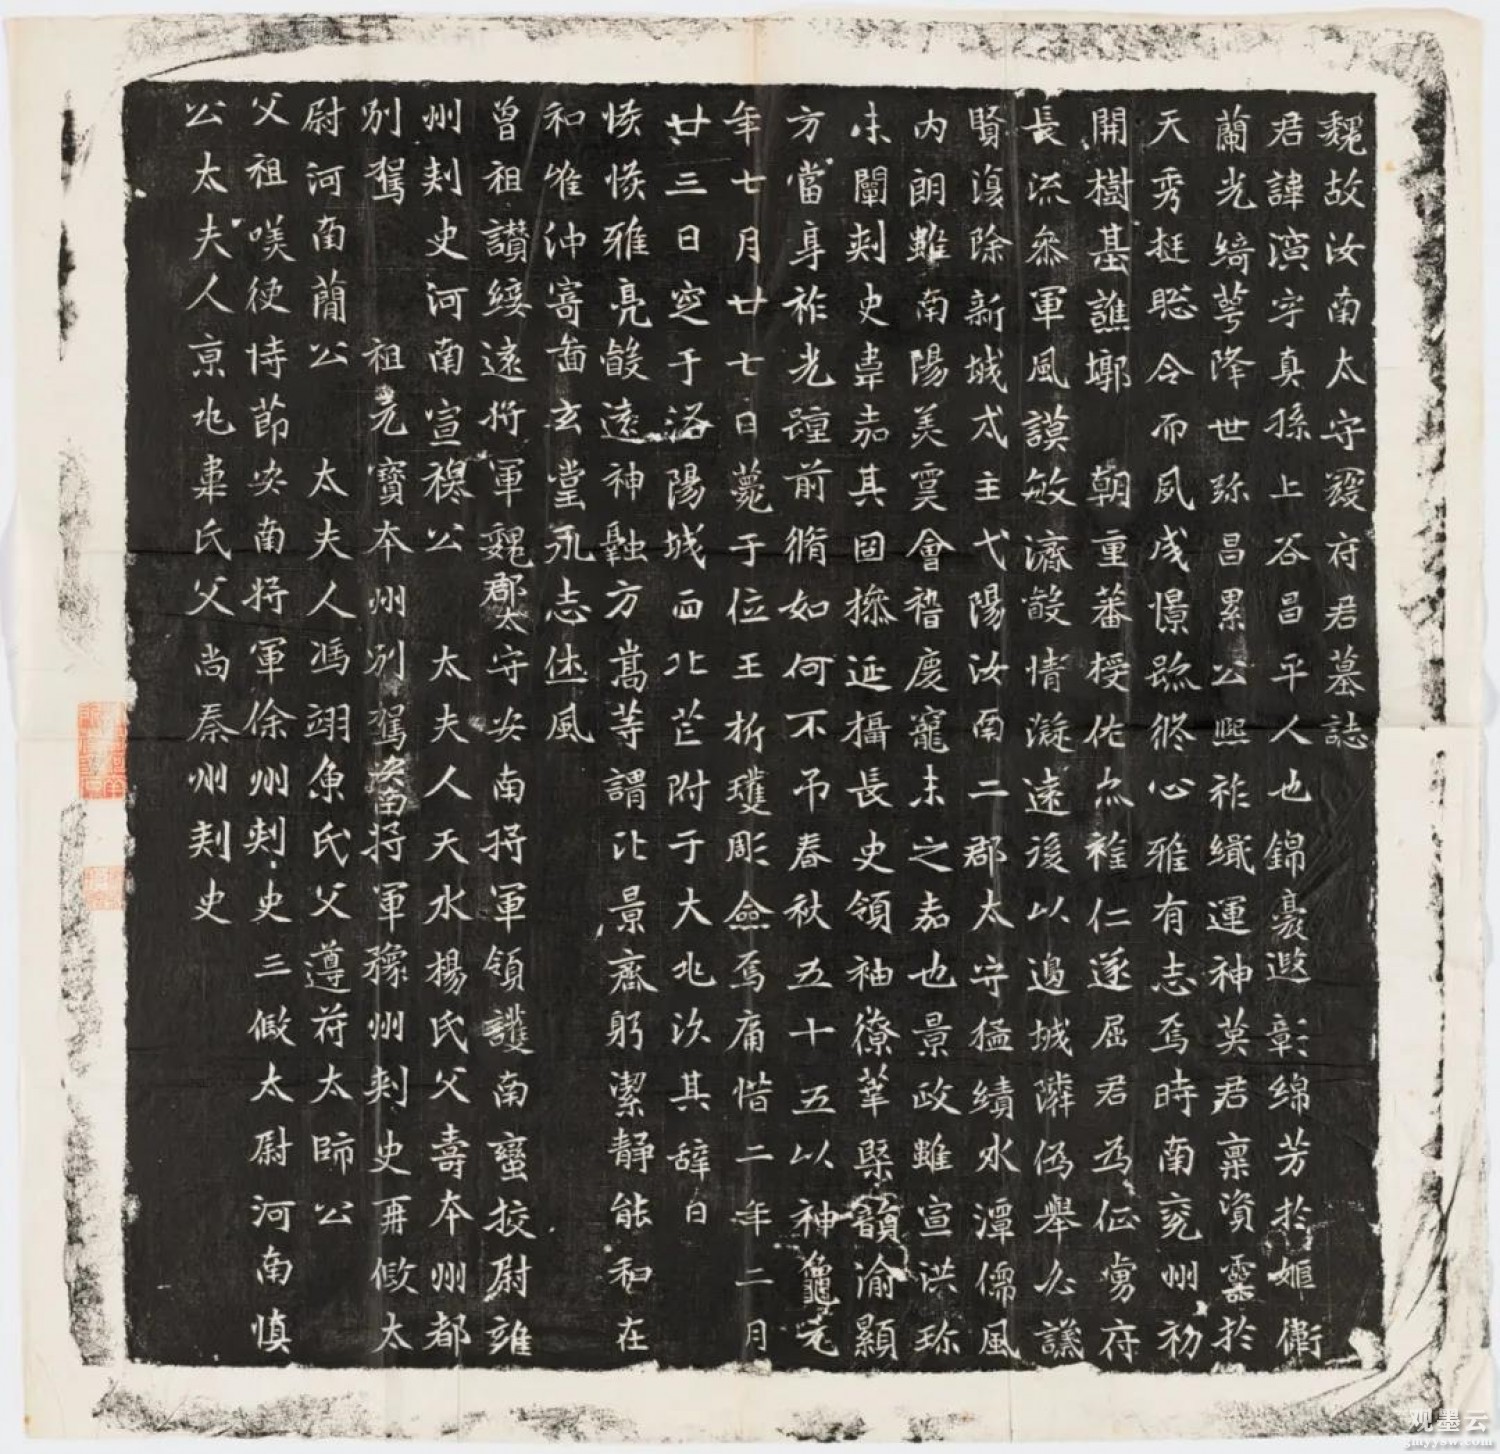 魏故汝南太守寇府君墓誌
君諱演字真孫上谷昌平人也錦裛遐彰綿芳於姬衛
蘭光綺萼降世弥昌累公熙祚纖運神英君稟資靈於
天秀挺聡令而夙成憬踪終心雅有志焉時南兖州初
開樹基譙墎 朝重蕃授佐尒維仁遂屈君為征虜府
長流叅軍風謨敏濟散情凝遠後以邊城隣偽舉必議
賢復除新城戍主弋陽汝南二郡太守猛績氷潭儒風
內朗雖南陽羙雲會稽慶寵未之嘉也景政雖宣洪珎
未闡刾史韋嘉其固操延攝長史領袖僚莑槩韻渝顯
方當享祚光踵前脩如何不弔春秋五十五以神龜元
年七月廿七日薨于位王析瓊彫僉焉痛惜二年二月
廿三日窆于洛陽城西北芒附于大北次其辭曰
悠悠雅亮馥遠神融方嵩等謂比景齊躬潔靜能和在
和惟沖寄啚玄堂永志烋風
曾祖讃綏遠將軍魏郡太守安南將軍領護南蠻挍尉雍
州刾史河南宣穆公 太夫人天水楊氏父壽本州都
別駕 祖元寶本州別駕安南將軍豫州刾史再假太
尉河南蕳公 太夫人馮翊魚氏父遵苻太師公
父祖嘆使恃節安南將軍徐州刾史三假太尉河南慎
公太夫人京兆韋氏父尚秦州刾史
观墨云